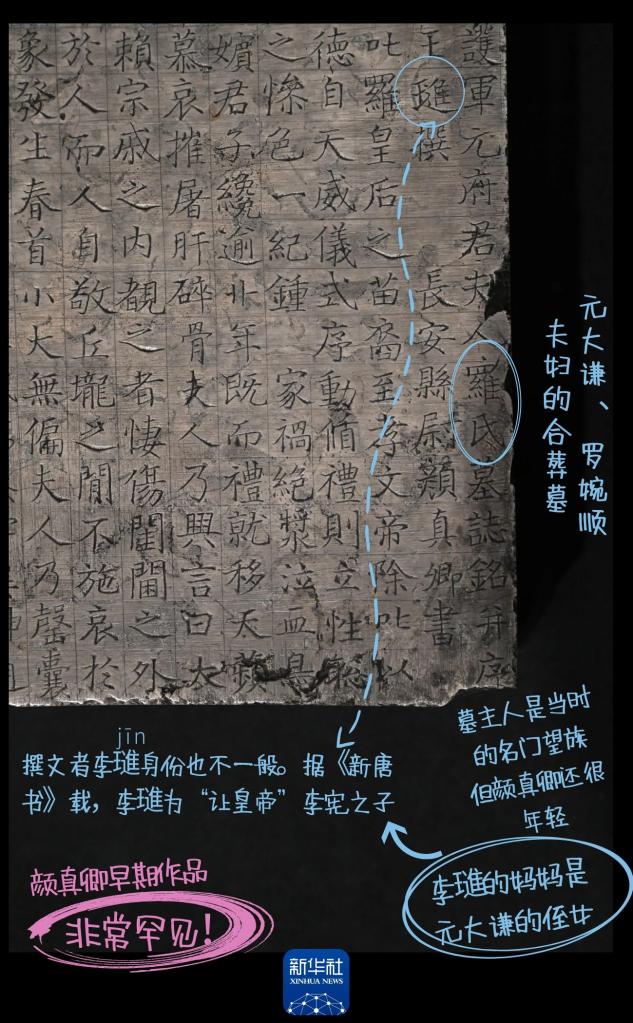 護軍元府君夫人羅氏墓誌銘并序
王璡撰 長安縣尉顏真卿書
叱羅皇后之苗裔至孝文帝除叱以
德自天威儀式序動脩禮則立性聡
之慘色一紀鍾 家禍絕漿泣血
嬪君子纔逾卝年既而禮就移天蘋
慕哀摧屠肝碎骨夫人乃興言曰大
賴宗戚之內覩之者悽傷閨閫之外
於人而人自敬丘壠之間不施哀於
象發生春首小大無偏夫人乃罄囊
元大谦、罗婉顺
夫妇的合葬墓
墓主人是当时
的名门望族
但颜真卿还很
年轻
jīn
撰文者李琎身份也不一般。据《新唐
书》载，李琎为“让皇帝”李宪之子
李琎的妈妈是
元大谦的侄女
颜真卿早期作品
非常罕见！
新华社
XINHUA NEWS